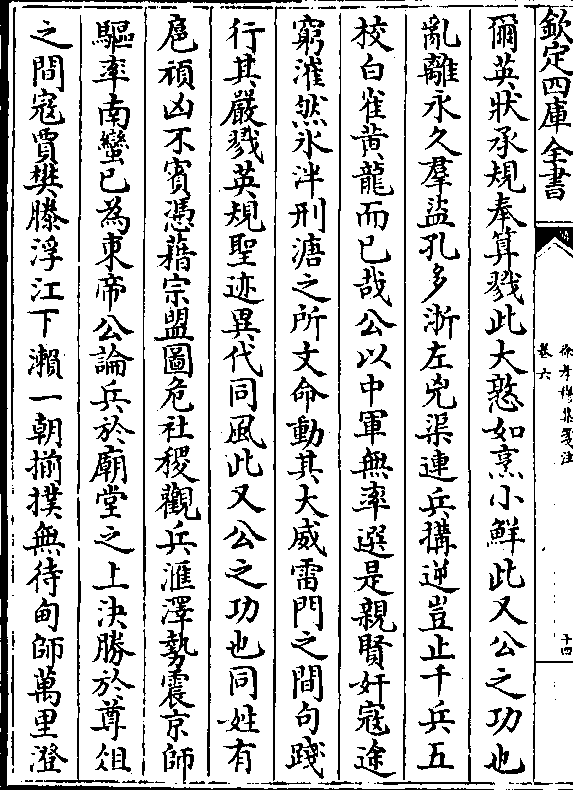 欽定四庫全書
徐孝穆集箋注
卷六
十四
爾英狀承規奉算戮此大憝如烹小鮮此又公之功也
亂離永久羣盜孔多浙左兇渠連兵搆逆豈止千兵五
校白雀黄龍而已哉公以中軍無率選是親賢奸寇途
窮漼然氷泮刑溏之所文命動其大威雷門之間句踐
行其嚴戮英規聖迹異代同風此又公之功也同姓有
扈頑凶不賓憑藉宗盟圖危社稷觀兵滙澤勢震京師
驅率南蠻已為東帝公論兵於廟堂之上決勝於尊俎
之間寇賈樊滕浮江下瀨一朝揃撲無待甸師萬里澄